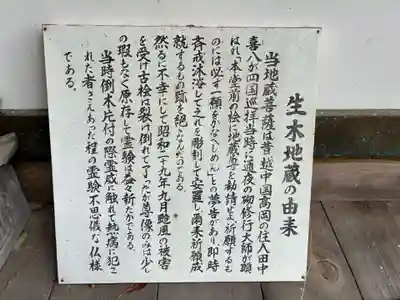 生木地蔵の由来
当地蔵菩薩は昔越中国高岡の住人田中
喜八が四国巡拝当時に通夜の砌修行大師が顕
はれ本堂前の桧に地蔵尊を勧請せよ祈願するも
のには必ず一願をかな(しめん)との夢告があり即時
斉戒沐浴してこれを彫刻して安置し爾来祈願成
就するもの跡を絶さなかったのである。
然るに不幸にして昭和二十九年九月颱風の被害
を受け古桧は裂け倒れて了ったが尊像のみは少し
の瑕もなく原存して霊験は益々新たかである。
当時倒木片付の際霊威に触れて熱病に犯さ
れた者さえあった程の霊験不思儀な仏様
である。